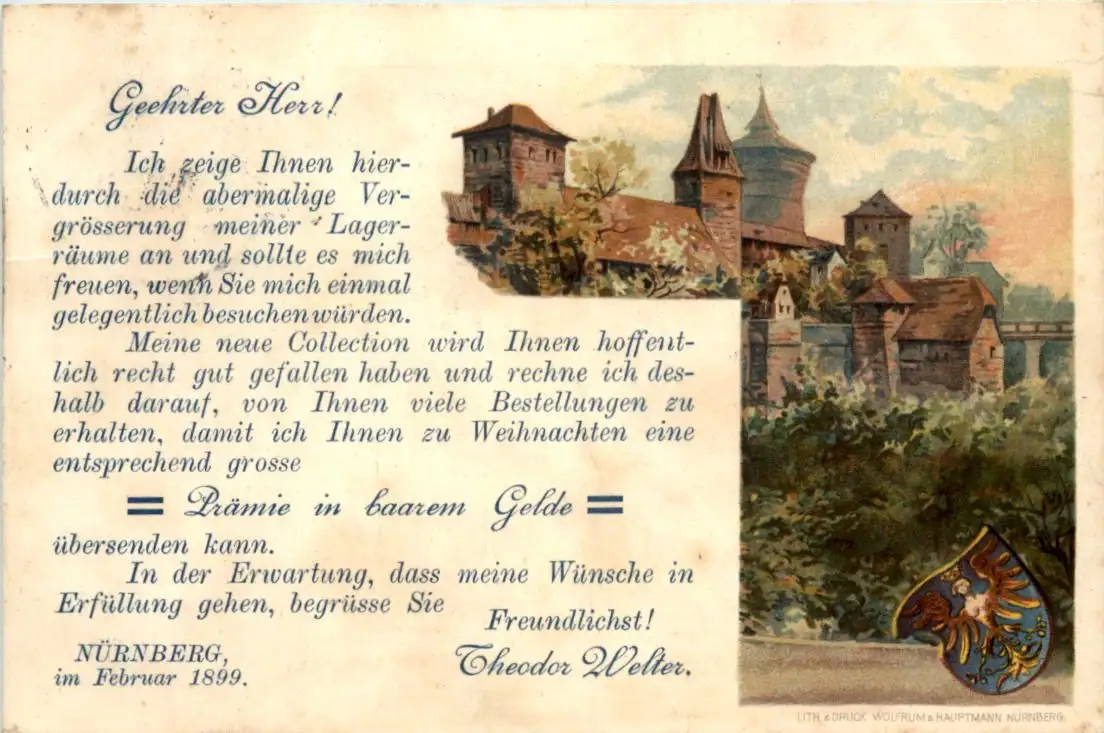 Geehrter Herr!
Ich zeige Ihnen hier-
durch die abermalige Ver-
grösserung meiner Lager-
räume an und sollte es mich
freuen, wenn Sie mich einmal
gelegentlich besuchen würden.
Meine neue Collection wird Ihnen hoffent-
lich recht gut gefallen haben und rechne ich des-
halb darauf, von Ihnen viele Bestellungen zu
erhalten, damit ich Ihnen zu Weihnachten eine
entsprechend grosse
Prämie in baarem Gelde
übersenden kann.
In der Erwartung, dass meine Wünsche in
Erfüllung gehen, begrüsse Sie
Freundlichst!
NÜRNBERG,
im Februar 1899.
Theodor Welter.
LITH. & DRUCK WOLFRUM & HAUPTMANN NÜRNBERG.